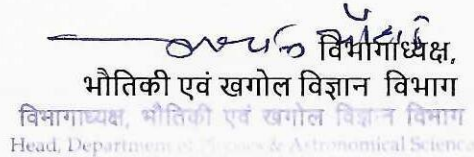 विभागाध्यक्ष,
भौतिकी एवं खगोल विज्ञान विभाग
विभागाध्यक्ष, भौतिकी एवं खगोल विज्ञान विभाग
Head, Department of Physics & Astronomical Science